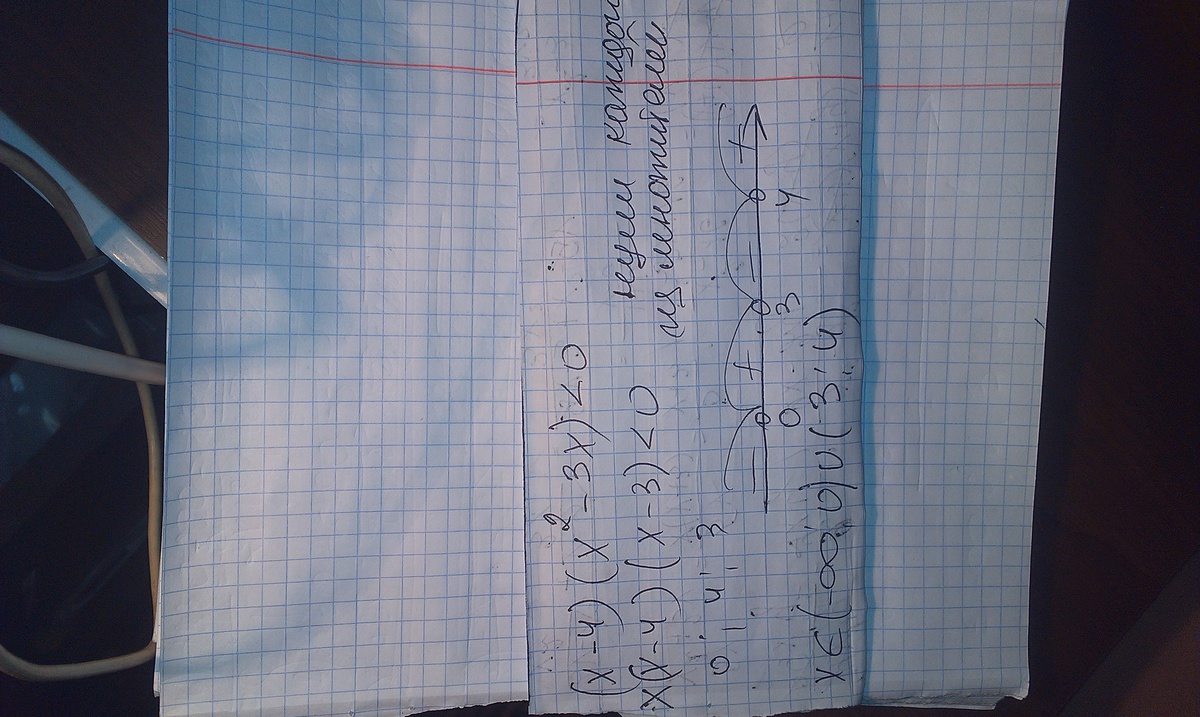 (x-4)(x²-3x)<0
x(x-4)(x-3)<0
нули каждого
из множителей
0; 4; 3
- + - +
0 3 4
x∈(-∞;0)∪(3;4)